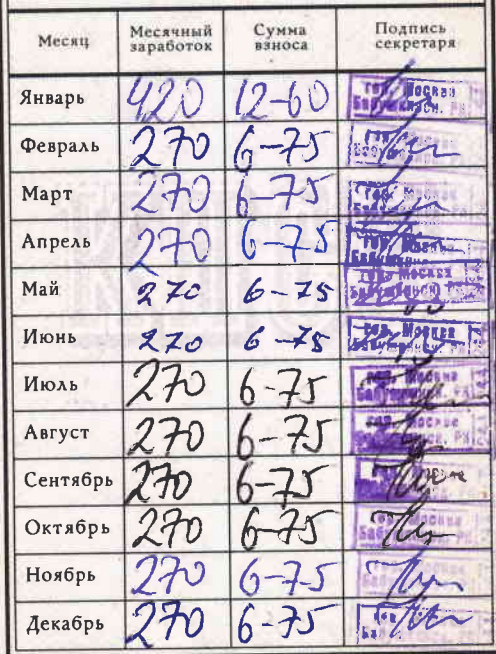 Месяц Месячный заработок Сумма взноса Подпись секретаря
Январь 420 12-60 гор. Москва
Февраль 270 6-75
Март 270 6-75
Апрель 270 6-75 гор. Москва
Май 270 6-75 гор. Москва
Июнь 270 6-75 гор. Москва
Июль 270 6-75 гор. Москва
Август 270 6-75 гор. Москва
Сентябрь 270 6-75
Октябрь 270 6-75 гор. Москва
Ноябрь 270 6-75
Декабрь 270 6-75